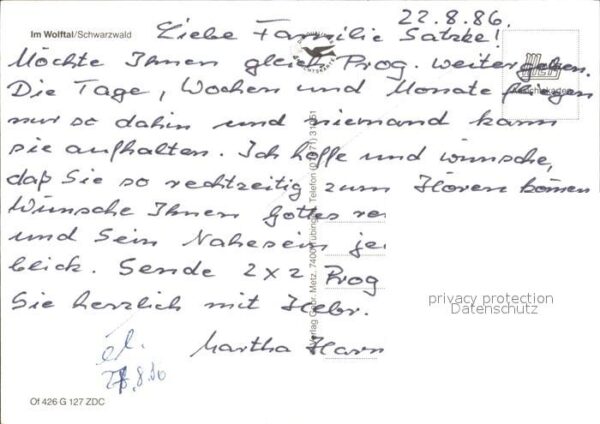 22.8.86.
Im Wolftal/Schwarzwald
Liebe Familie Satzke!
Möchte Ihnen gleich Prog. weitergeben.
Die Tage, Wochen und Monate fliegen
nur so dahin und niemand kann
sie aufhalten. Ich hoffe und wünsche,
daß Sie so rechtzeitig zum Hören können
Wünsche Ihnen Gottes
und Sein Nahesein je
blick. Sende 2x2 Prog
Sie herzlich mit Hebr.
Martha
8.86
Verlag Gebr. Metz, 7400 Tübingen, Telefon
privacy protection
Datenschutz
Of 426 G 127 ZDC